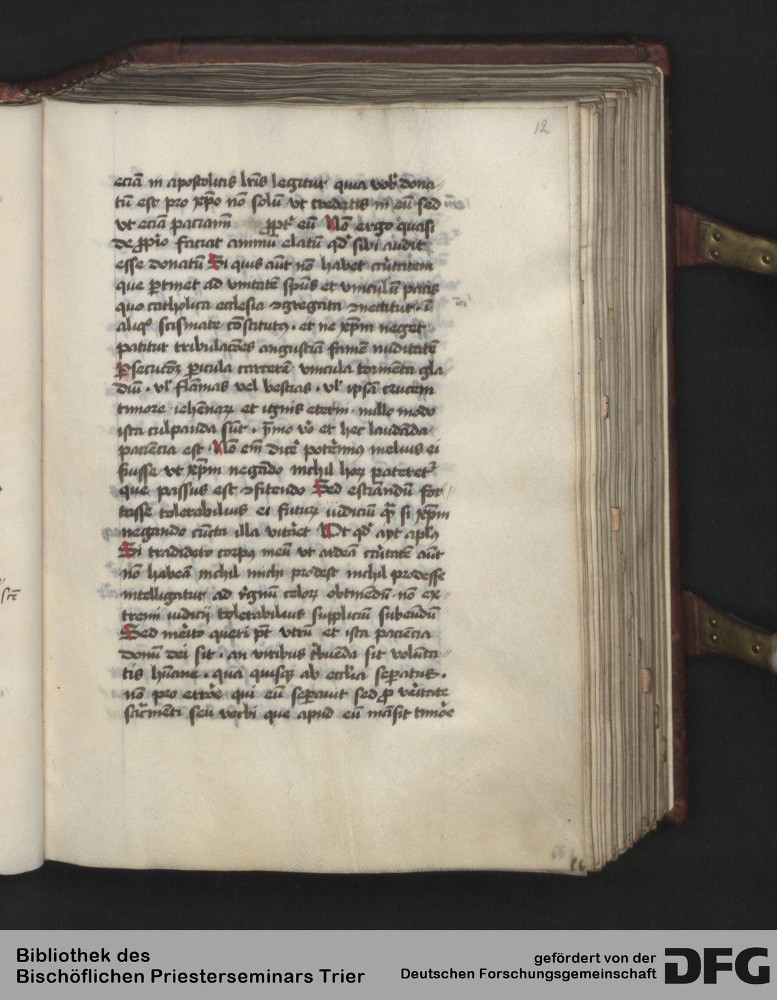 12
eciā in apostolicis lr̄is legitur quia vob̄ dona-
tū est pro xp̄o nō solū vt credatis in eū sed
vt eciā paciamī ꝓpt̄ eū Nō ergo quasi
de ꝓp̄o faciat animū elatū qd̄ sibi audit
esse donatū Si quis aūt nō habet cāritatem
que ꝑtinet ad vnitatē sp̄us et vinculū pacis
quo catholica ecclesia ꝯgregata ꝯnectitur · ī
aliqͦ scismate cōstitutꝰ · et ne xp̄m neget
patitur tribulacōes angustiā famē nuditatē
ꝑsecucōꝫ ꝑicula carcerē vincula tormenta gla-
diū · vl̄ flāmas vel bestias · vl̄ ipsā crucem
timore iehennaꝝ et ignis eterni · nullo modo
ista culpanda sūt · ymo v̄o et hec laudāda
paciēcia est Nō em̄ dicē poterimꝰ melius ei
fuisse vt xp̄m negādo nichil hoꝝ pateretᷣ
que passus est ꝯfitendo Sed estimādū for-
tasse tolerabilius ei futuꝝ iudiciū qͣ si xp̄m
negando cūcta illa vitāet Vt qd̄ ayt apl̄s
Si tradidero corpꝰ meū vt ardeā cāritatē aūt
nō habeā nichil michi prodest nichil prodesse
intelligatur ad rēgnū celoꝝ obtinēdū · nō ex-
tremi iudicij tolerabilius suppliciū subeūdū
Sed mērito queri pōt vtrū et ista paciēcia
donū dei sit · an viribus tͥbuēda sit volūta-
tis hūane · qua quisqꝫ ab eccl̄ia seꝑatus ·
nō pro errōe qui eū seꝑauit sed ꝓ v̄itate
sac̄menti seu verbi que apud eū māsit timōe
Bibliothek des
Bischöflichen Priesterseminars Trier
gefördert von der
Deutschen Forschungsgemeinschaft
DFG